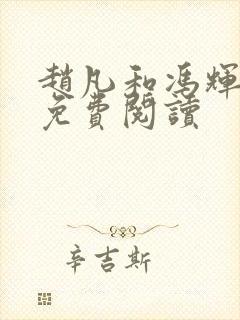 趙凡和馮輝
免費閱讀
辛吉斯